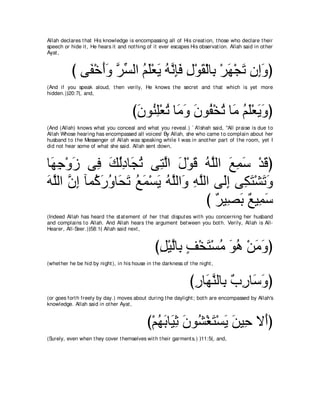 Allah declares that His knowledge is encompassing all of His creation, those who declare their
speech or hide it, He hears it and nothing of it ever escapes His observation. Allah said in other
Ayat,
(وَإِن تَجْهَرْ بِالْقَوْلِ فَإِنَّهُ يَعْلَمُ السِّرَّ وَأَخْفَى )
(And if you speak aloud, then verily, He knows the secret and that which is yet more
hidden.)[20:7], and,
(وَيَعْلَمُ مَا تُخْفُونَ وَمَا تُعْلِنُونَ)
(And (Allah) knows what you conceal and what you reveal.) `A'ishah said, "All praise is due to
Allah Whose hearing has encompassed all voices! By Allah, she who came to complain about her
husband to the Messenger of Allah was speaking while I was in another part of the room, yet I
did not hear some of what she said. Allah sent down,
(قَدْ سَمِعَ اللَّهُ قَوْلَ الَّتِى تُجَادِلُكَ فِى زَوْجِهَا
وَتَشْتَكِى إِلَى اللَّهِ وَاللَّهُ يَسْمَعُ تَحَاوُرَكُمآ إِنَّ اللَّهَ
سَمِيعٌ بَصِيرٌ )
(Indeed Allah has heard the statement of her that disputes with you concerning her husband
and complains to Allah. And Allah hears the argument between you both. Verily, Allah is All-
Hearer, All-Seer.)(58:1) Allah said next,
(وَمَنْ هُوَ مُسْتَخْفٍ بِالَّيْلِ)
(whether he be hid by night), in his house in the darkness of the night,
(وَسَارِبٌ بِالنَّهَارِ)
(or goes forth freely by day.) moves about during the daylight; both are encompassed by Allah's
knowledge. Allah said in other Ayat,
(أَلا حِينَ يَسْتَغْشُونَ ثِيَابَهُمْ)
(Surely, even when they cover themselves with their garments.) )11:5(, and,